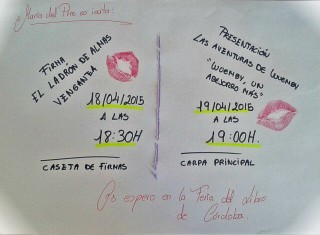 María del Pino os invita:
FIRMA
EL LADRÓN DE ALMAS
VENGANZA
18/04/2015
A LAS
18:30H
CASETA DE FIRMAS
PRESENTACIÓN
LAS AVENTURAS DE WUENDY
"WUENDY, UN
ABEJORRO MÁS"
19/04/2015
A LAS
19:00H.
CARPA PRINCIPAL
Os espero en la Feria del Libro
de Córdoba.